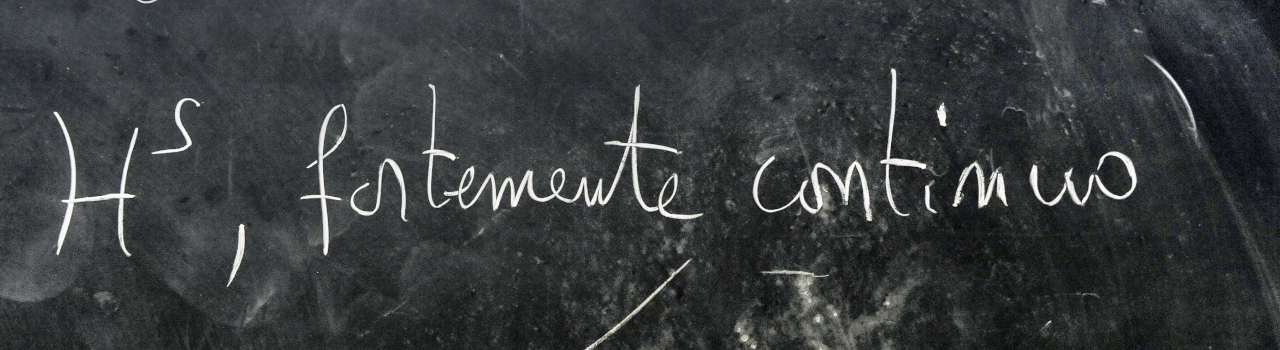 H^s, fortemente continuo